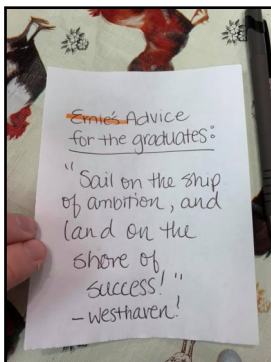 Ernie's Advice
for the graduates:
"Sail on the ship
of ambition, and
land on the
shore of
success!"
- Westhaven!